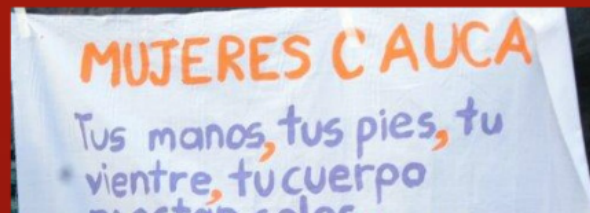 MUJERES CAUCA
Tus manos, tus pies, tu
vientre, tu cuerpo